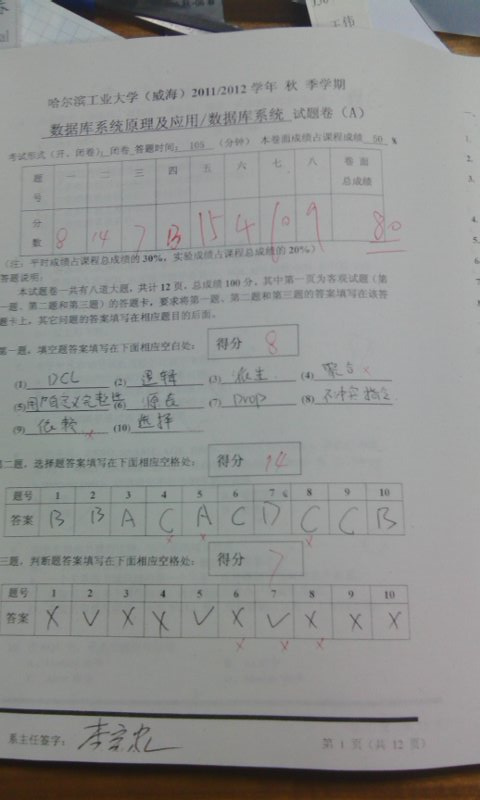 工伟
哈尔滨工业大学（威海）2011/2012 学年 秋 季学期
数据库系统原理及应用/数据库系统 试题卷（A）
考试形式（开、闭卷）：闭卷 答题时间：105 （分钟） 本卷面成绩占课程成绩 50 %
题号 一 二 三 四 五 六 七 八 卷面总成绩
分数 8 14 7 13 15 4 10 9 80
（注：平时成绩占课程总成绩的 30%，实验成绩占课程总成绩的 20%）
答题说明：
本试题卷一共有八道大题，共计 12 页，总成绩 100 分，其中第一页为客观试题（第
一题、第二题和第三题）的答题卡，要求将第一题、第二题和第三题的答案填写在该答
题卡上，其它问题的答案填写在相应题目的后面。
第一题，填空题答案填写在下面相应空白处： 得分 8
(1) DCL (2) 逻辑 (3) 派生 (4)
(5) 用户自定义完整性 (6) 源表 (7) Drop (8)
(9) 依赖 (10) 选择
第二题，选择题答案填写在下面相应空格处： 得分 14
题号 1 2 3 4 5 6 7 8 9 10
答案 B B A C A C D C C B
三题，判断题答案填写在下面相应空格处： 得分 7
题号 1 2 3 4 5 6 7 8 9 10
答案 × √ × × √ × √ × × ×
系主任签字：
第 1 页（共 12 页）